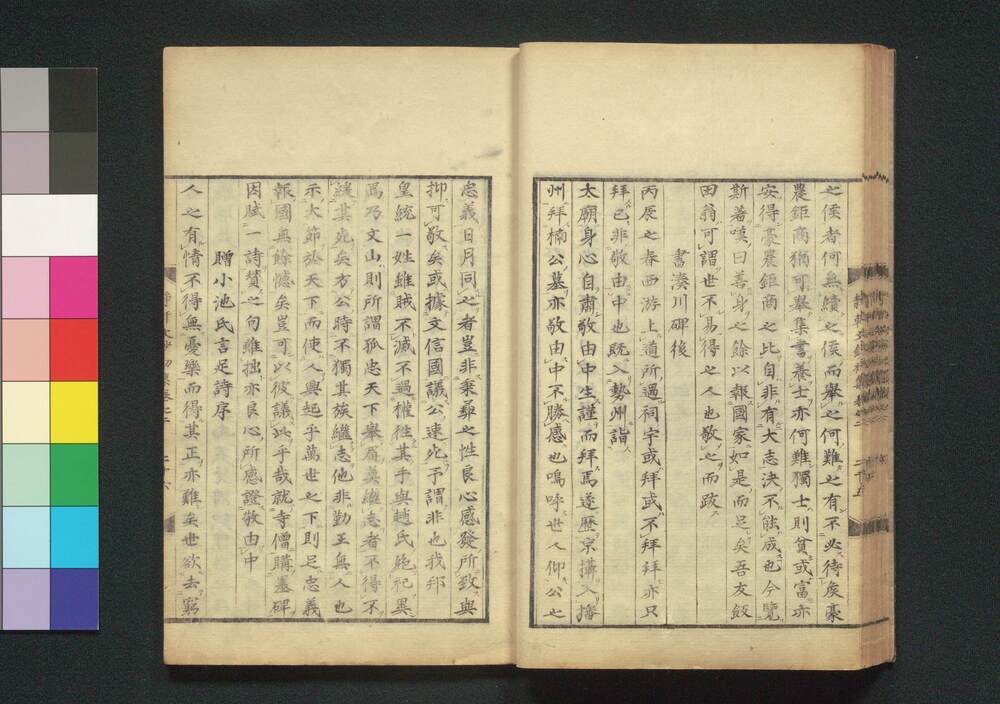 之侯者何無續之侯而舉之何難之有不必待矦豪
農鉅商猶可擧集書養士亦何難獨士則貧或富亦
安得豪農鉅商之比自非有大志決不能成也今覽
斯著嘆曰善身之餘以報國家如是而足矣吾友飯
田翁可謂世不易得之人也敬之而跋
書湊川碑後
丙辰之春西游上道所過祠宇或拜或不拜拜亦只
拜已非敬由中也既入勢州詣
太廟身心自肅敬由中生謹而拜焉遂歷京攝入播
州拜楠公墓亦敬由中不勝感也嗚呼世人仰公之
忠義日月同之者豈非秉彝之性良心感發所致與
抑可敬矣或據文信國議公速死予謂非也我邦
皇統一姓雖賊不滅不過權徃其手與趙氏絶祀異
焉乃文山則所謂孤忠天下擧屑莫繼志者不得不
緩其死矣方公時不獨其族繼志他非勤王無人也
示大節於天下而使人興起乎萬世之下則足忠義
報國無餘憾矣豈可以彼議此乎哉就寺僧購墓碑
因賦一詩賛之句雖拙亦良心所感證敬由中
贈小池氏言足詩序
人之有情不得無憂樂而得其正亦難矣世欲去窮